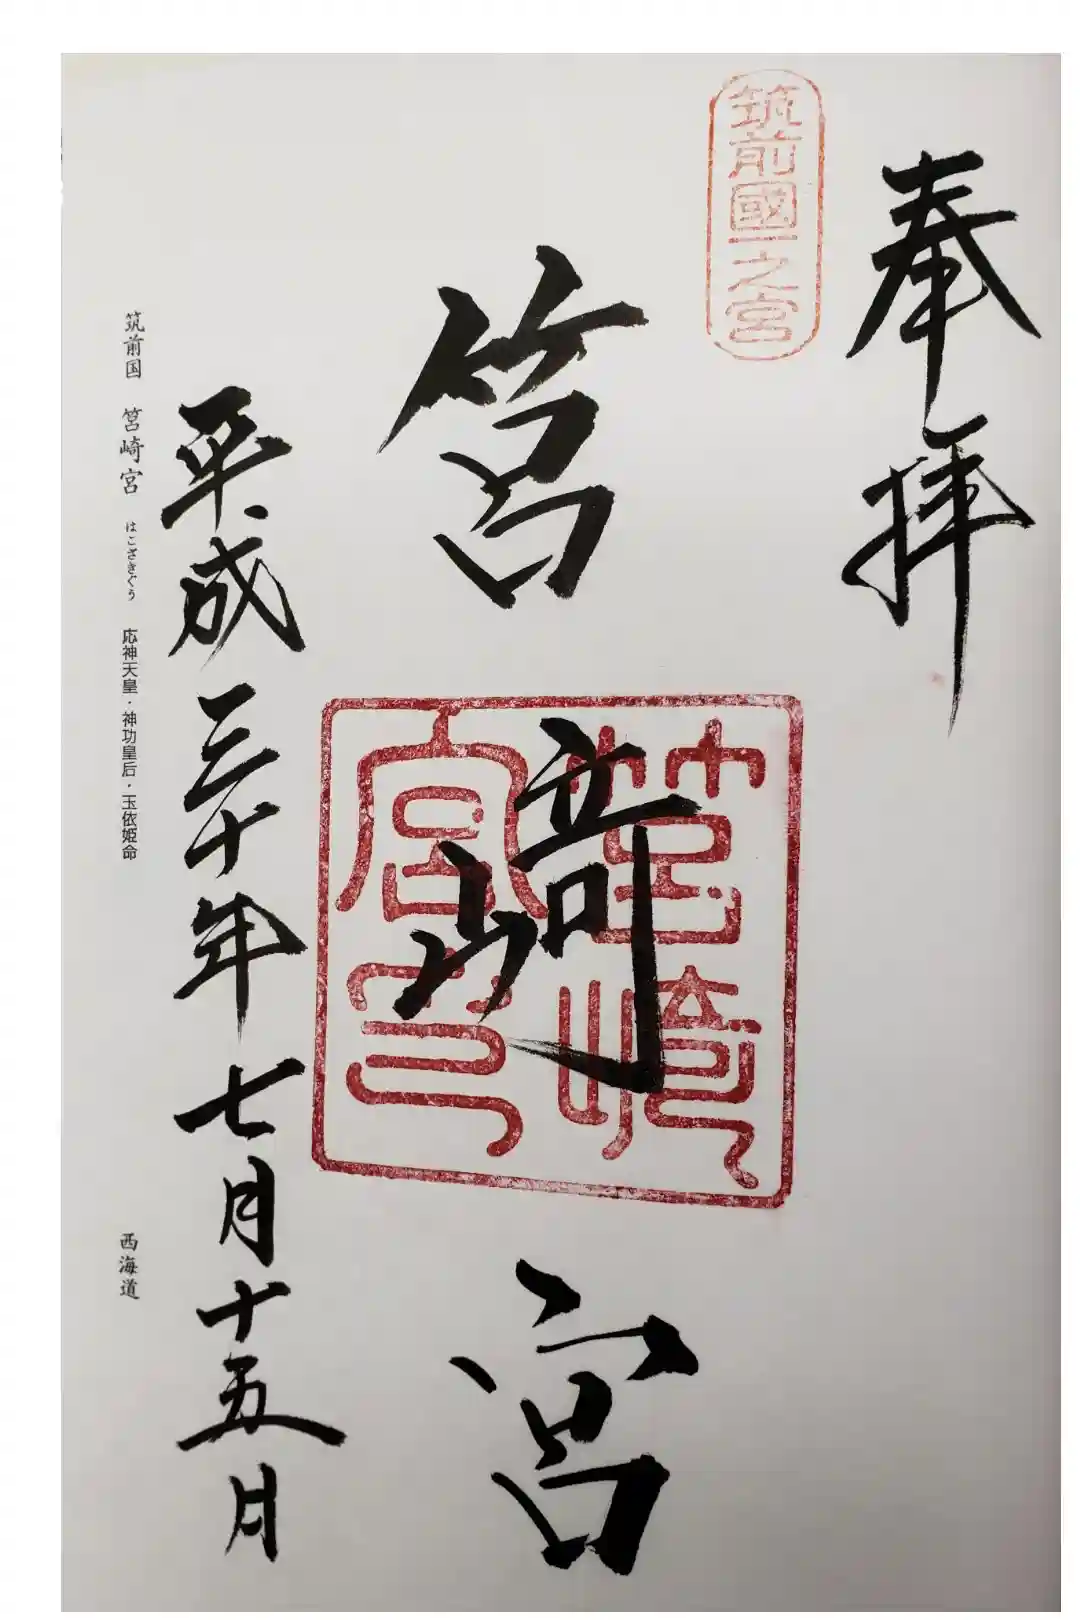 奉拝
筑前國一之宮
筥崎宮
筥崎宮印
平成三十年七月十五日
筑前国 筥崎宮 はこざきぐう 応神天皇・神功皇后・玉依姫命 西海道